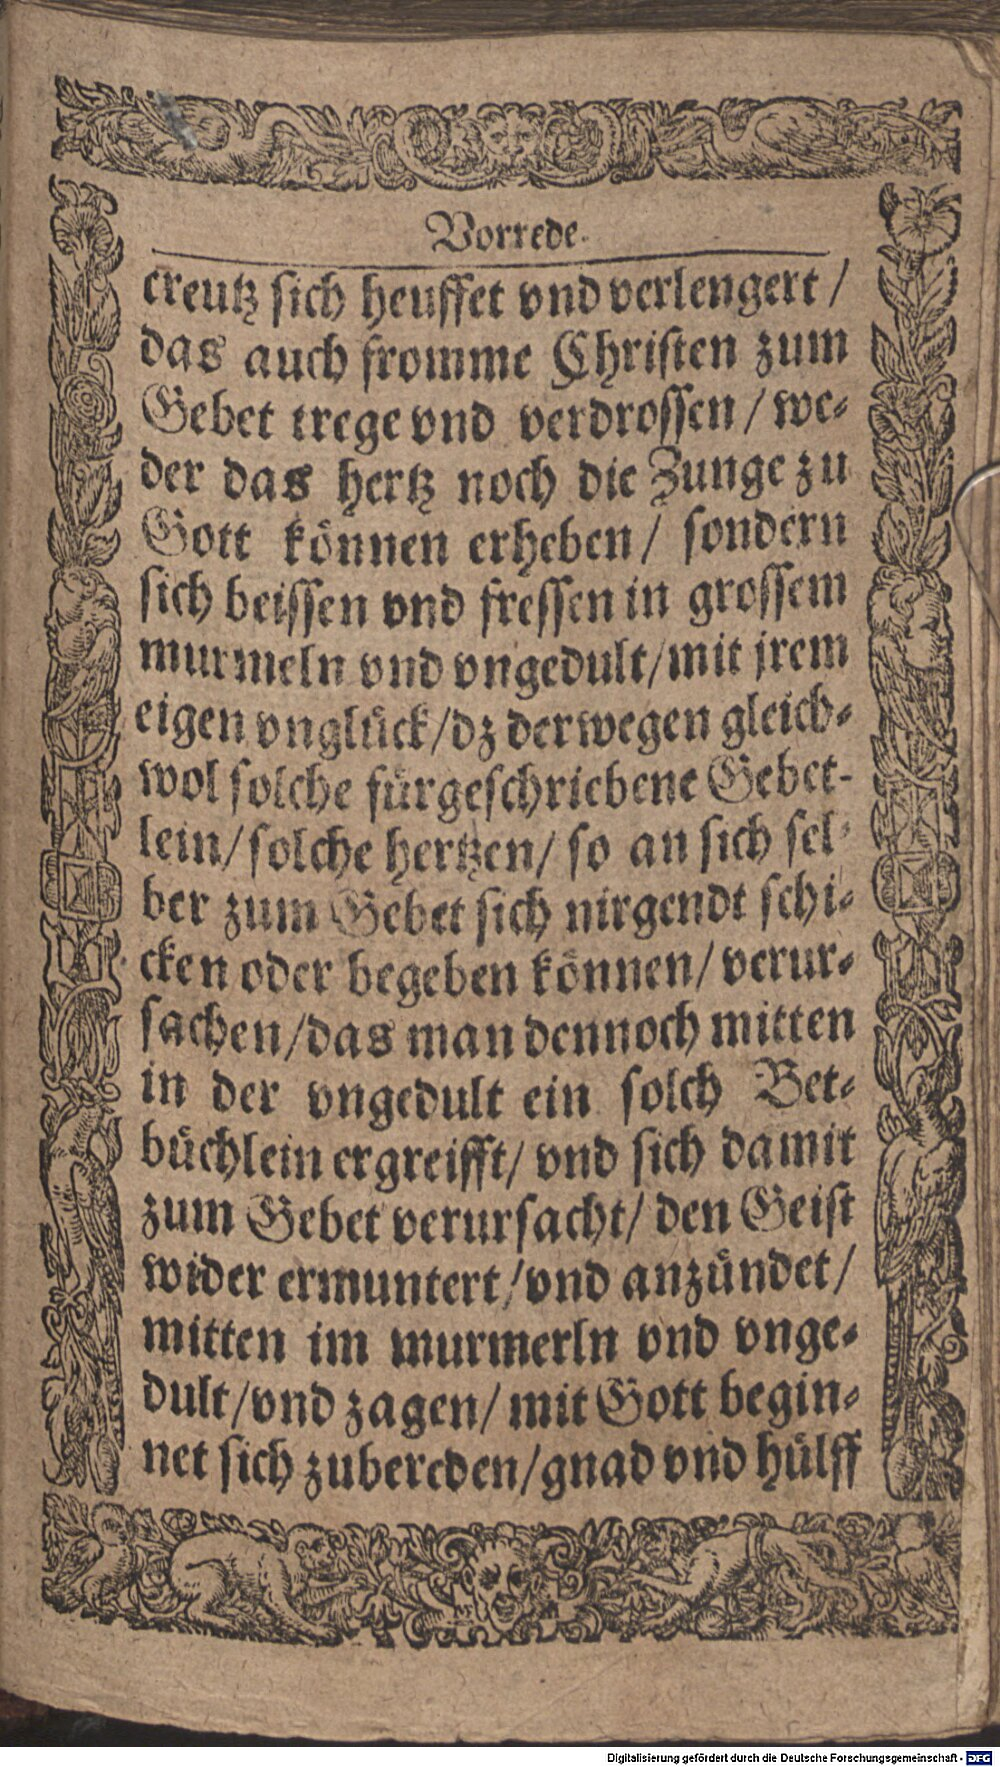 Vorrede.
creutz sich heuffet vnd verlengert /
das auch fromme Christen zum
Gebet trege vnd verdrossen / we-
der das hertz noch die Zunge zu
Gott können erheben / sondern
sich beissen vnd fressen in grossem
murmeln vnd vngedult / mit jrem
eigen vnglück / dz derwegen gleich-
wol solche fürgeschriebene Gebet-
lein / solche hertzen / so an sich sel-
ber zum Gebet sich nirgendt schi-
cken oder begeben können / verur-
sachen / das man dennoch mitten
in der vngedult ein solch Bet-
büchlein ergreifft / vnd sich damit
zum Gebet verursacht / den Geist
wider ermuntert / vnd anzündet /
mitten im murmerln vnd vnge-
dult / vnd zagen / mit Gott begin-
net sich zubereden / gnad vnd hülff
Digitalisierung gefördert durch die Deutsche Forschungsgemeinschaft - DFG